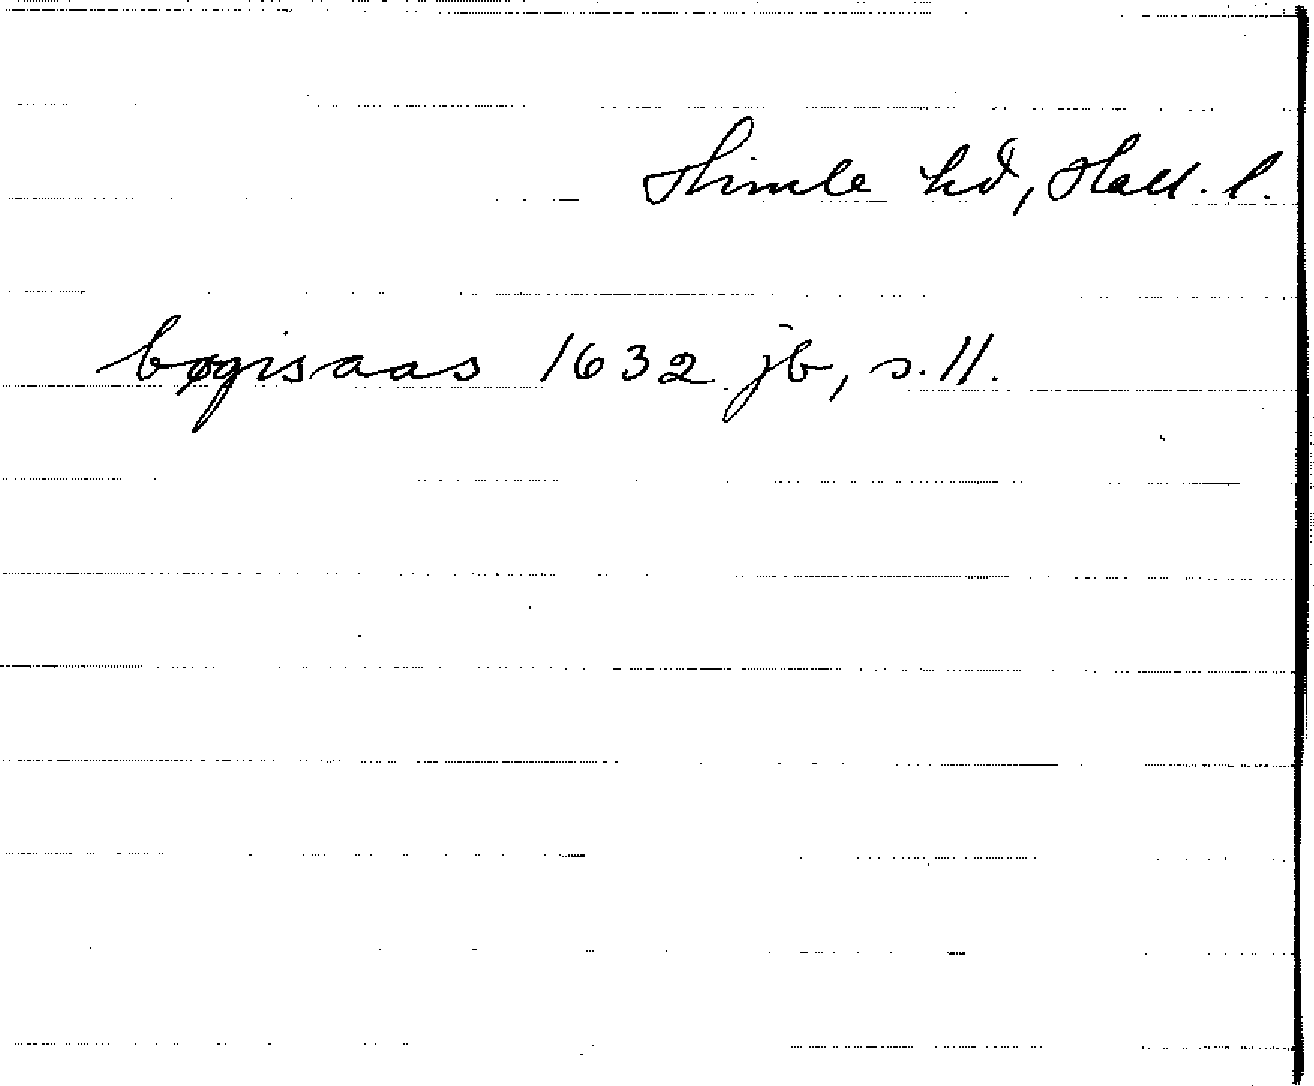 Himle hd, Hall. l.
bøgisaas 1632 jb, s. 11.